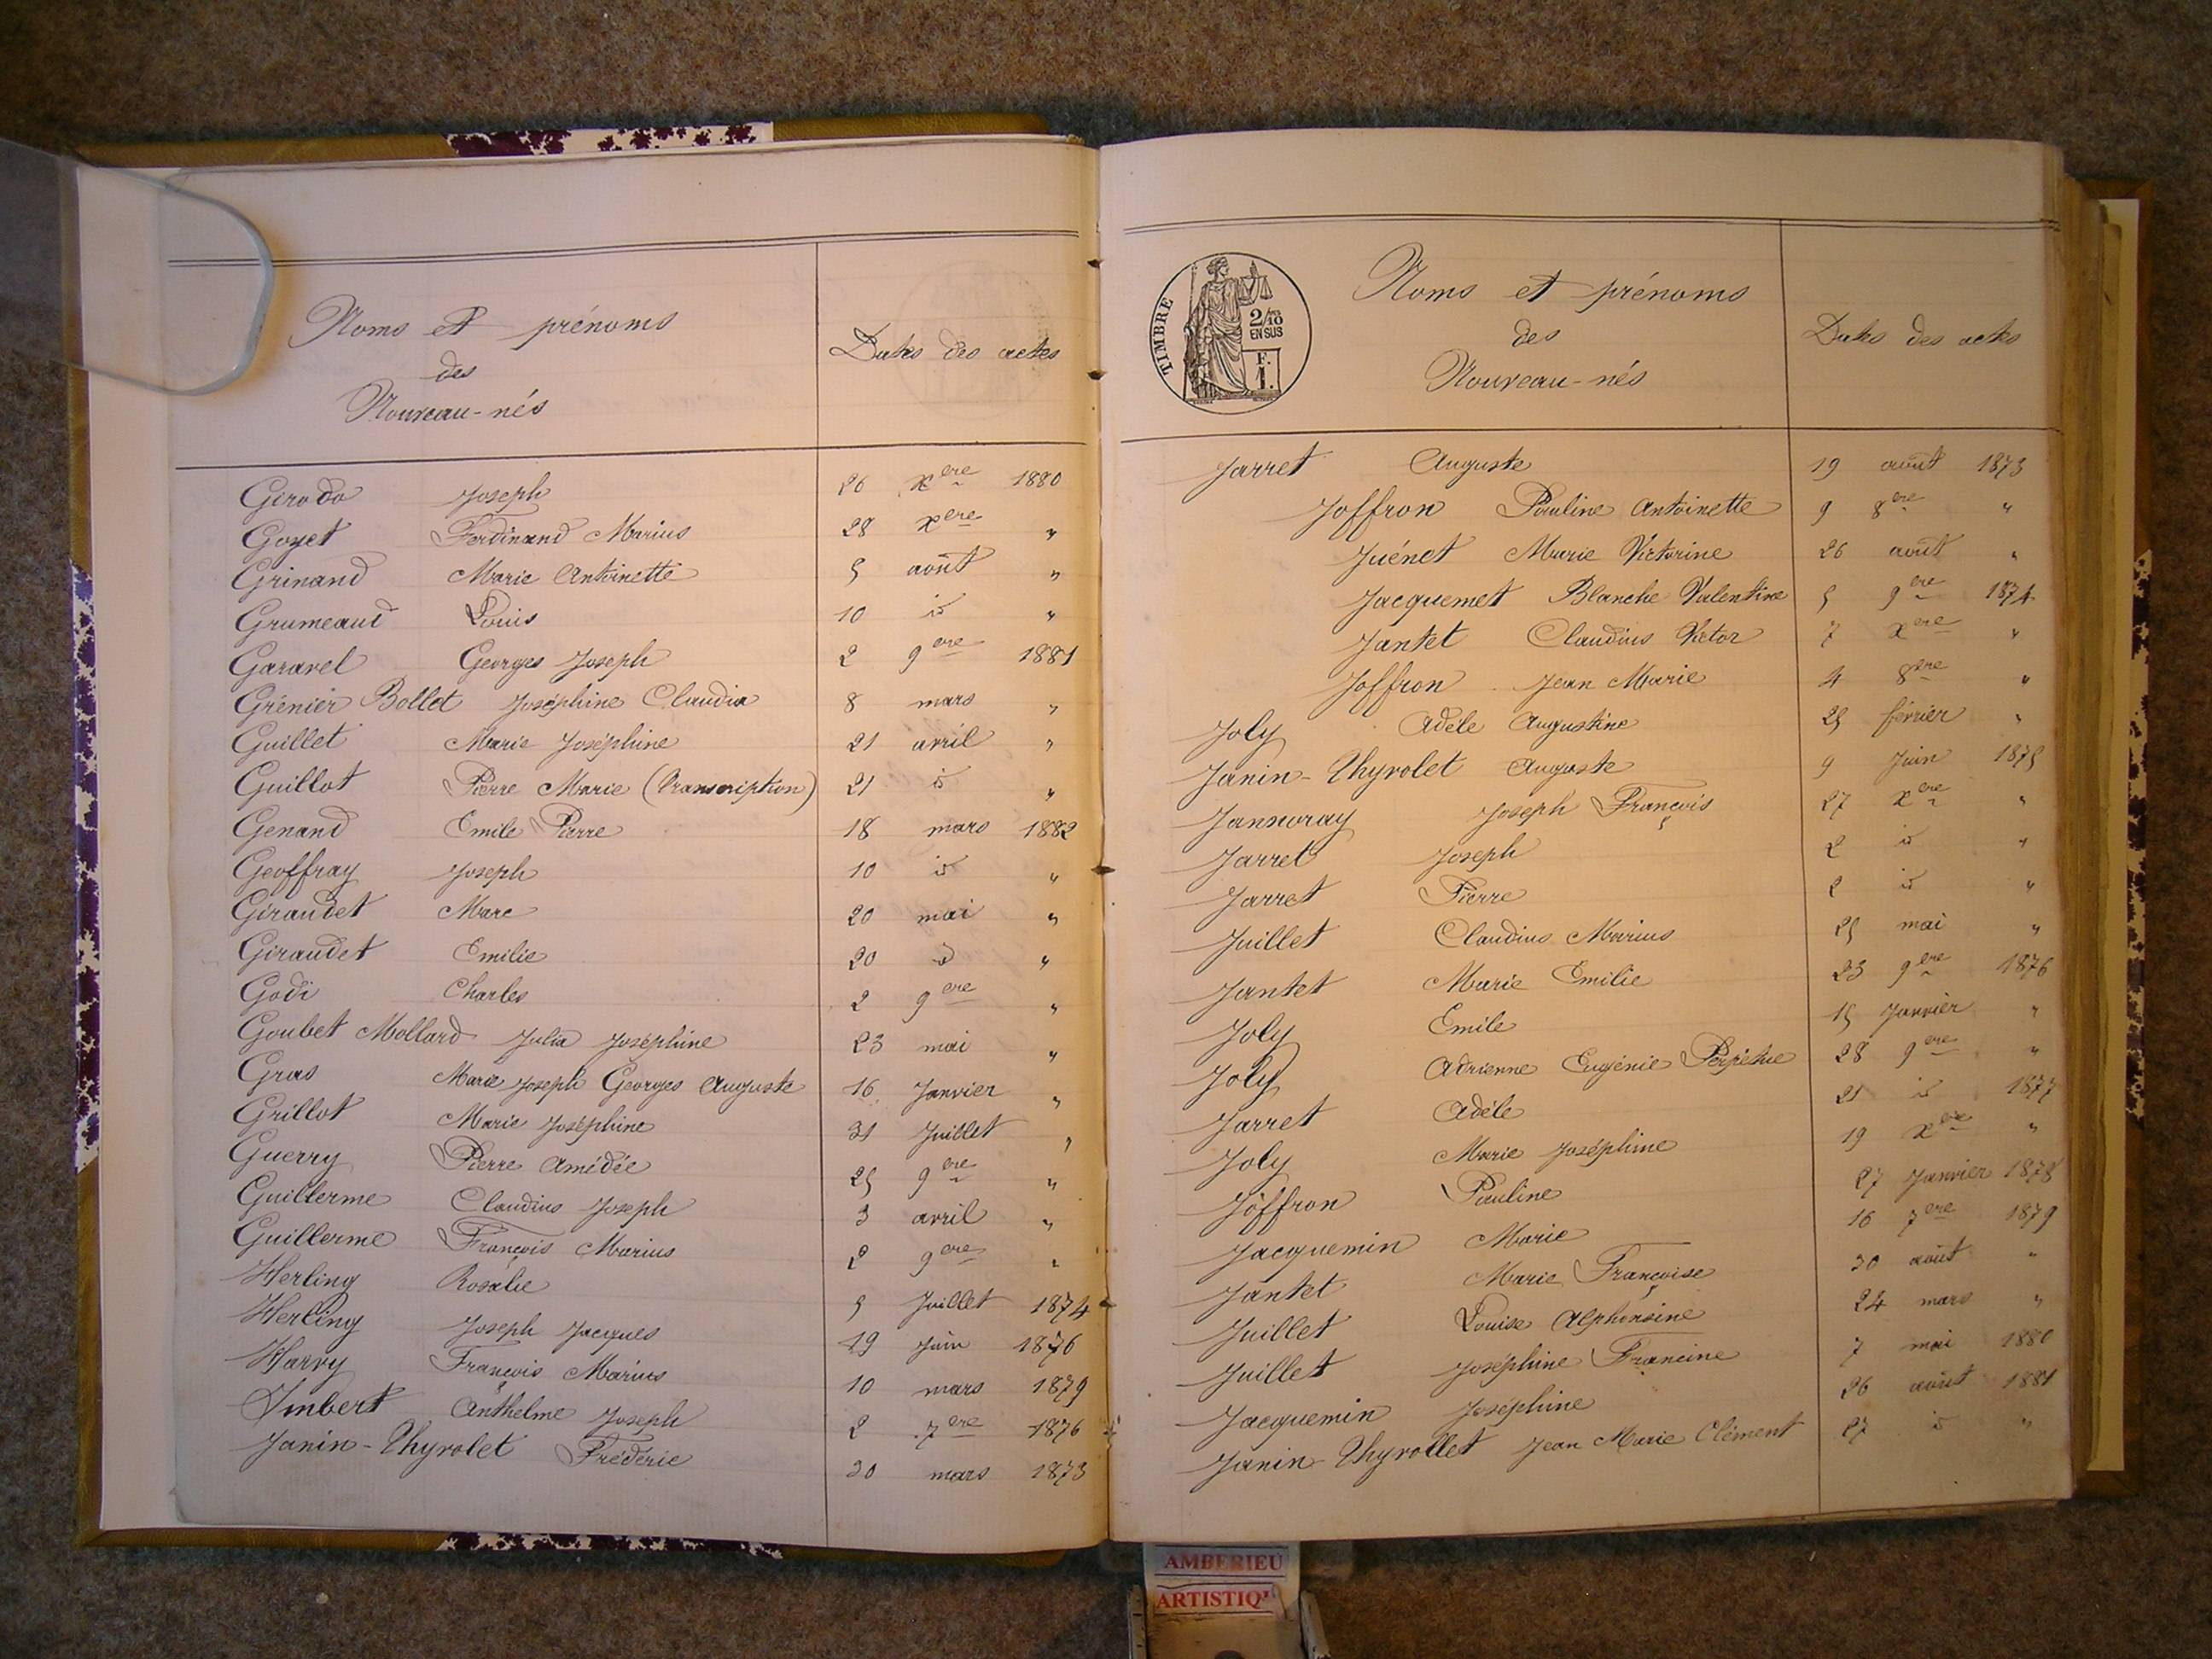 Noms et prénoms
des
Nouveau-nés
Dates des actes
Girodo Joseph 26 Xere 1880
Goyet Ferdinand Marius 28 Xere "
Grinand Marie Antoinette 5 août "
Grumeaud Louis 10 id "
Garavel Georges Joseph 2 9ere 1881
Grénier Bollet Joséphine Claudia 8 mars "
Guillet Marie Joséphine 21 avril "
Guillot Pierre Marie (transcription) 21 id "
Genand Emile Pierre 18 mars 1882
Geoffray Joseph 10 id "
Giraudet Marc 20 mai "
Giraudet Emilie 20 id "
Godi Charles 2 9ere "
Goubet Mollard Julia Joséphine 23 mai "
Gras Marie Joseph Georges Auguste 16 Janvier "
Grillot Marie Joséphine 31 Juillet "
Guerry Pierre Amédée 25 9ere "
Guillerme Claudius Joseph 3 avril "
Guillerme François Marius 2 9ere "
Herling Rosalie 5 Juillet 1874
Herling Joseph Jacques 19 Juin 1876
Harvy François Marius 10 mars 1879
Imbert Anthelme Joseph 2 7ere 1876
Janin-Thyvolet Frédéric 30 mars 1873
TIMBRE
2/10
EN SUS
F.
1.
Noms et prénoms
des
Nouveau-nés
Dates des actes
Jarret Auguste 19 août 1873
Joffron Pauline Antoinette 9 8ere "
Juénet Marie Victorine 26 août "
Jacquemet Blanche Valentine 5 9ere 1874
Jantet Claudius Victor 7 Xere "
Joffron Jean Marie 4 8ere "
Joly Adèle Augustine 25 février "
Janin-Thyvolet Auguste 9 Juin 1875
Jannoray Joseph François 27 Xere "
Jarret Joseph 2 id "
Jarret Pierre 2 id "
Juillet Claudius Marius 25 mai "
Jantet Marie Emilie 23 9ere 1876
Joly Emile 15 Janvier "
Joly Adrienne Eugénie Perpétue 28 9ere "
Jarret Adèle 21 id 1877
Joly Marie Joséphine 19 Xere "
Joffron Pauline 27 Janvier 1878
Jacquemin Marie 16 7ere 1879
Jantet Marie Françoise 30 août "
Juillet Louise Alphonsine 24 mars "
Juillet Joséphine Francine 7 mai 1880
Jacquemin Joséphine 26 août 1881
Janin-Thyvollet Jean Marie Clément 27 id "
AMBERIEU
ARTISTIQ